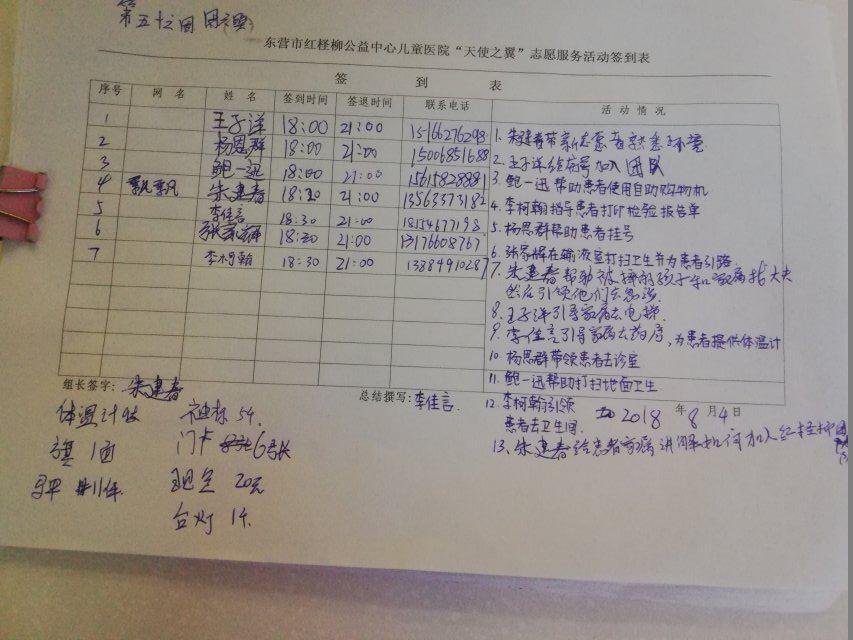 东营市红柽柳公益中心儿童医院“天使之翼”志愿服务活动签到表
签 到 表
序号 网 名 姓 名 签到时间 签退时间 联系电话 活 动 情 况
1 王子洋 18:00 21:00 15166276298
2 杨思群 18:00 21:00 15006851688
3 鲍一迅 18:00 21:00 15615828881
4 飘飘 朱建春 18:20 21:00 13563373182
5 李佳言 18:30 21:00 18154677193
6 张家辉 18:30 21:00 13176608767
7 李柯翰 18:30 21:00 13884910287
1. 朱建春带新志愿者熟悉环境
2. 王子洋给 加入团队
3. 鲍一迅帮助患者使用自助购物机
4. 李柯翰指导患者打印检验报告单
5. 杨思群帮助患者挂号
6. 张家辉在输液室打扫卫生并为患者引路
7. 朱建春帮助被 的孩子和家属找大夫
然后引领他们去急诊.
8. 王子洋引导家属去电梯
9. 李佳言引导家属去药房, 为患者提供体温计
10. 杨思群带领患者去诊室
11. 鲍一迅帮助打扫地面卫生
12. 李柯翰引领
患者去卫生间.
13. 朱建春给患者家属讲解如何加入红柽柳团
组长签字: 朱建春 总结撰写: 李佳言. 2018 年 8 月 4 日
体温计 袖标 5个.
旗 1面 门卡 6张
马甲 11件. 现金 20元
台灯 1个.